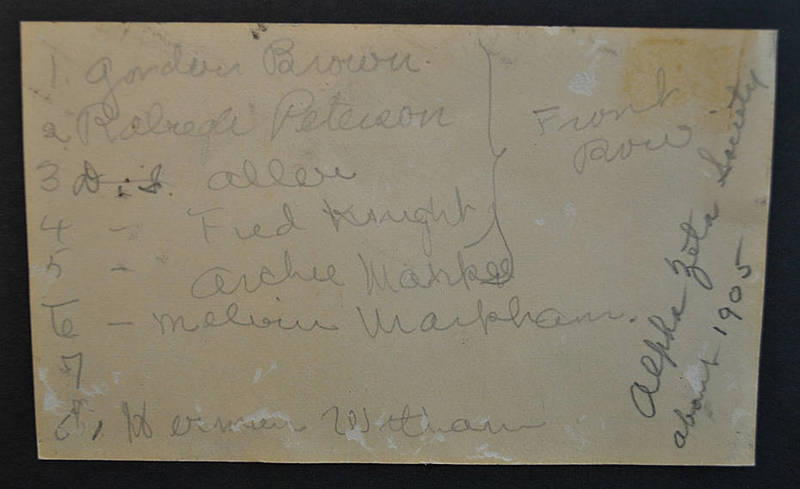 1. Gordon Brown.
2 Peterson
3 D. S. Allen
4 - Fred Knight
5 - Archie
6 - Melvin Markham.
7
8, Herman Witham
Front
Row
Alpha Zeta Society
about 1905